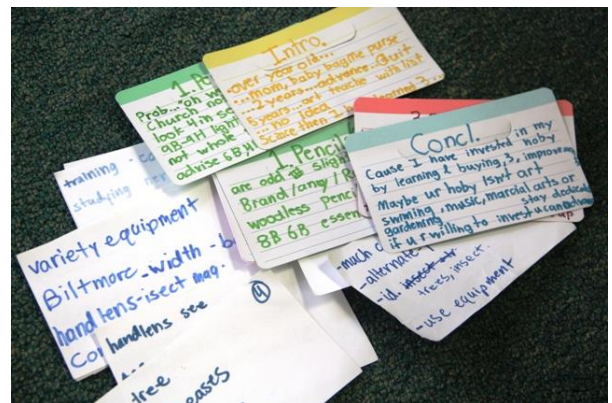 Intro.
over year old...
...mom, baby bag me purse
...2 years...advance...Quit
5 years...art teache with list
...no idea
Scince then I learned 3...
1. Pe
Prob...oh w
Church not
look 4 in s
9B-9H light
not whole
advise 6B,H
1. Pencil
are odd slig
Brand/array/
woodless Penc
8B 6B essen
Concl.
Cause I have invested in my
by learning & buying, 3, improving
Maybe ur hoby Isn't art
swming, music, marcial arts or
gardening stay dedicate
if u r willing to invest u can
training
studying
variety equipment
Biltmore - width - b
handlens-isect mag.
Co
handlens see
4
tree
eases
-much
-alternate
-id. insect
trees, insect.
-use equipment
up